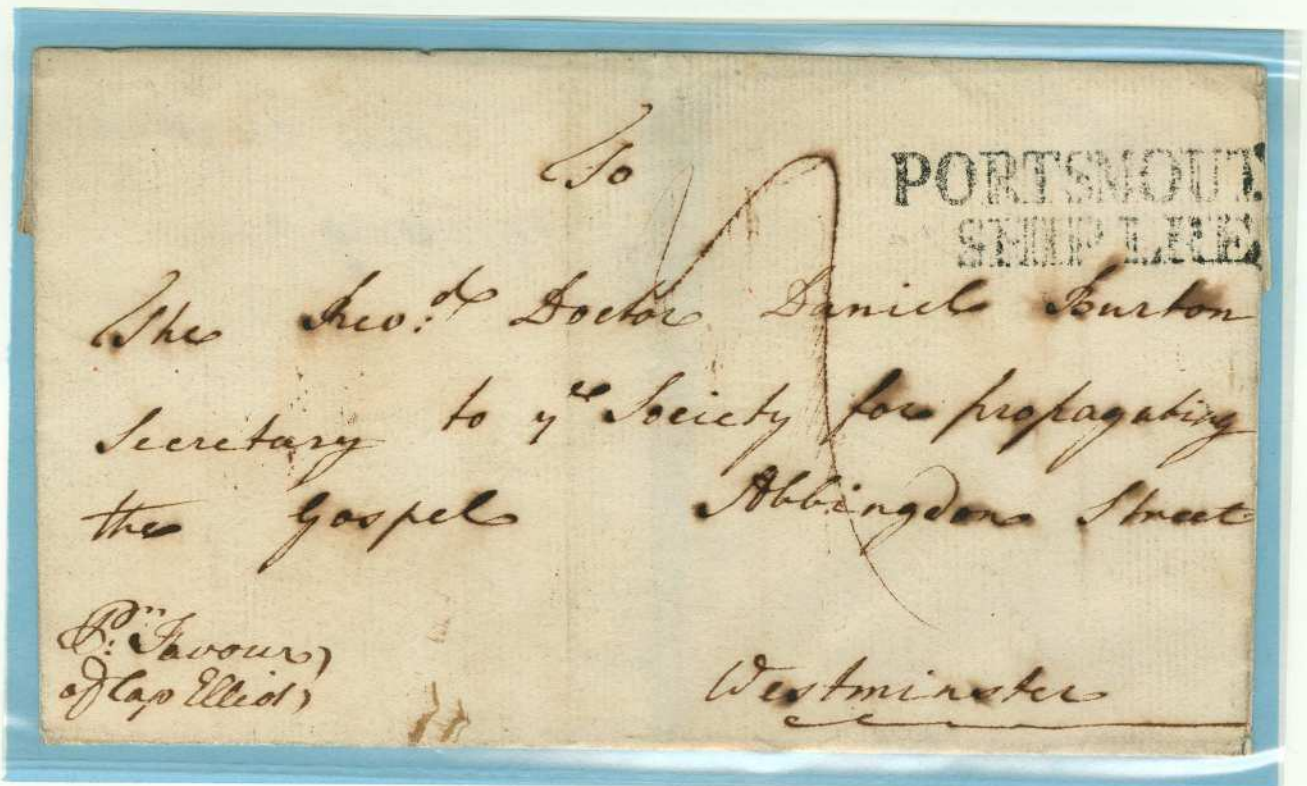 To
PORTSMOUT
SHIP LRE
The Revd. Doctor Daniel Burton
Secretary to ye Society for propagating
the Gospel Abbingdon Street
Pr. Favour
of Cap Elliot
Westminster